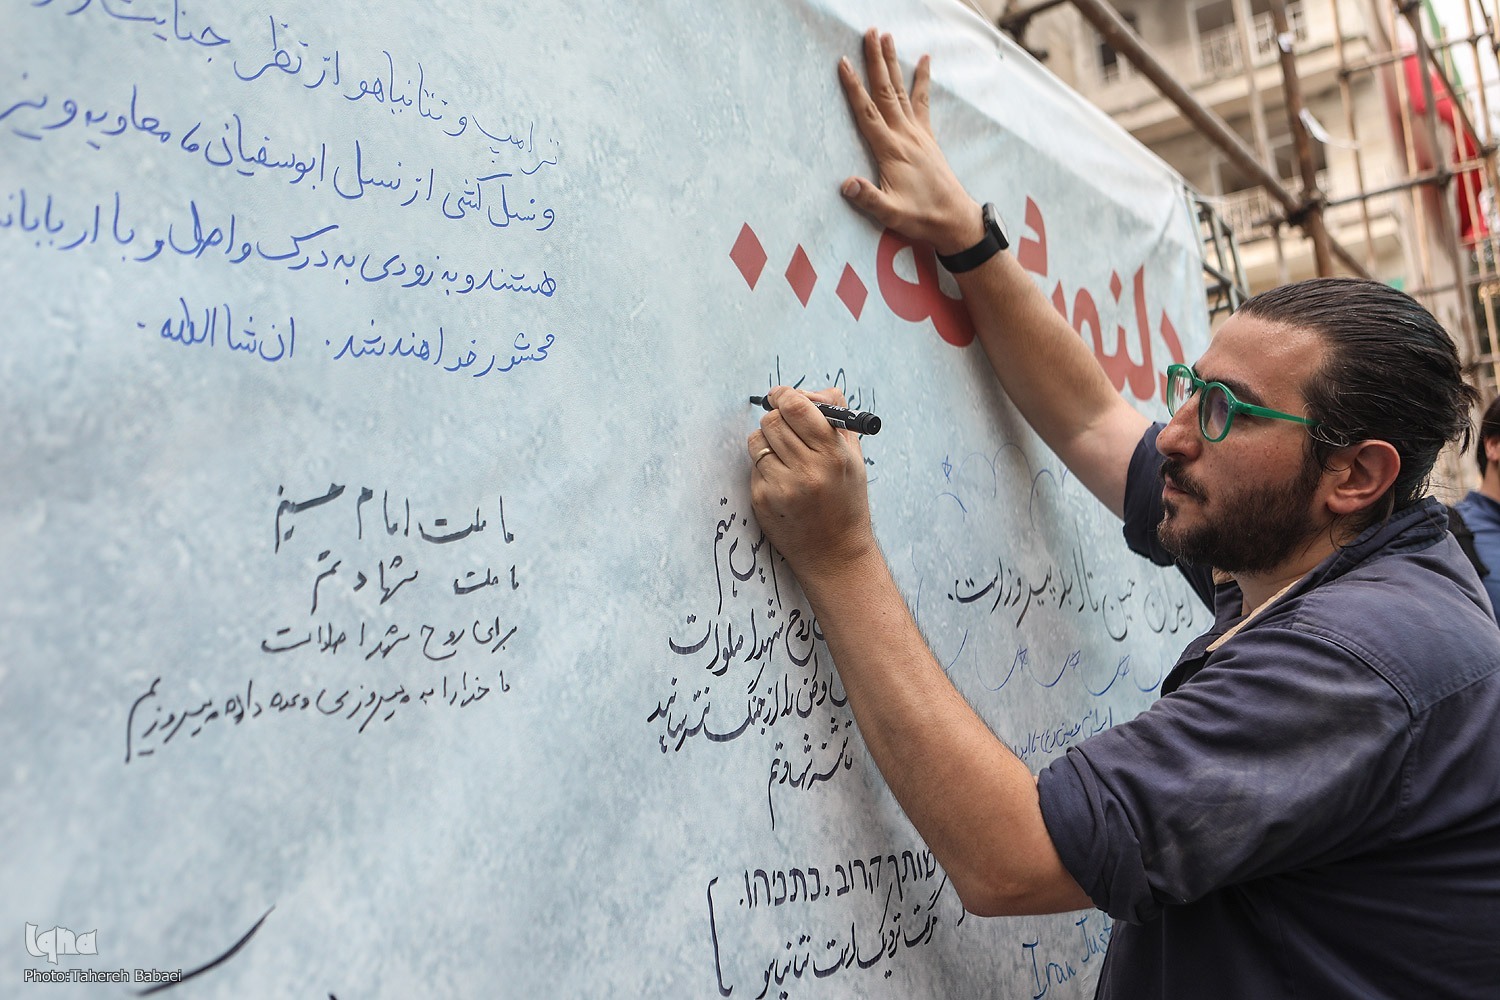 ترامپ و نتانیاهو از نظر جنایت و
و نسل کشی از نسل ابوسفیان، معاویه و یز
هستند و به زودی به درک واصل و با اربابان
محشور خواهند شد. ان شاالله.
ما ملت امام حسینیم
ما ملت شهادتیم
برای روح شهدا صلوات
ما خدا را به پیروزی وعده داده پیروزیم
دلنو ه...
روح شهدا صلوات
وطن را از جنگ نترسانید
ما تشنه شهادتیم
ایران حسین تا ابد پیروز است.
ایران حسین تا ابد
מותך קרוב. נתניהו.
مرگت نزدیک است نتانیاهو
Iran Just
Iqna
Photo:Tahereh Babaei